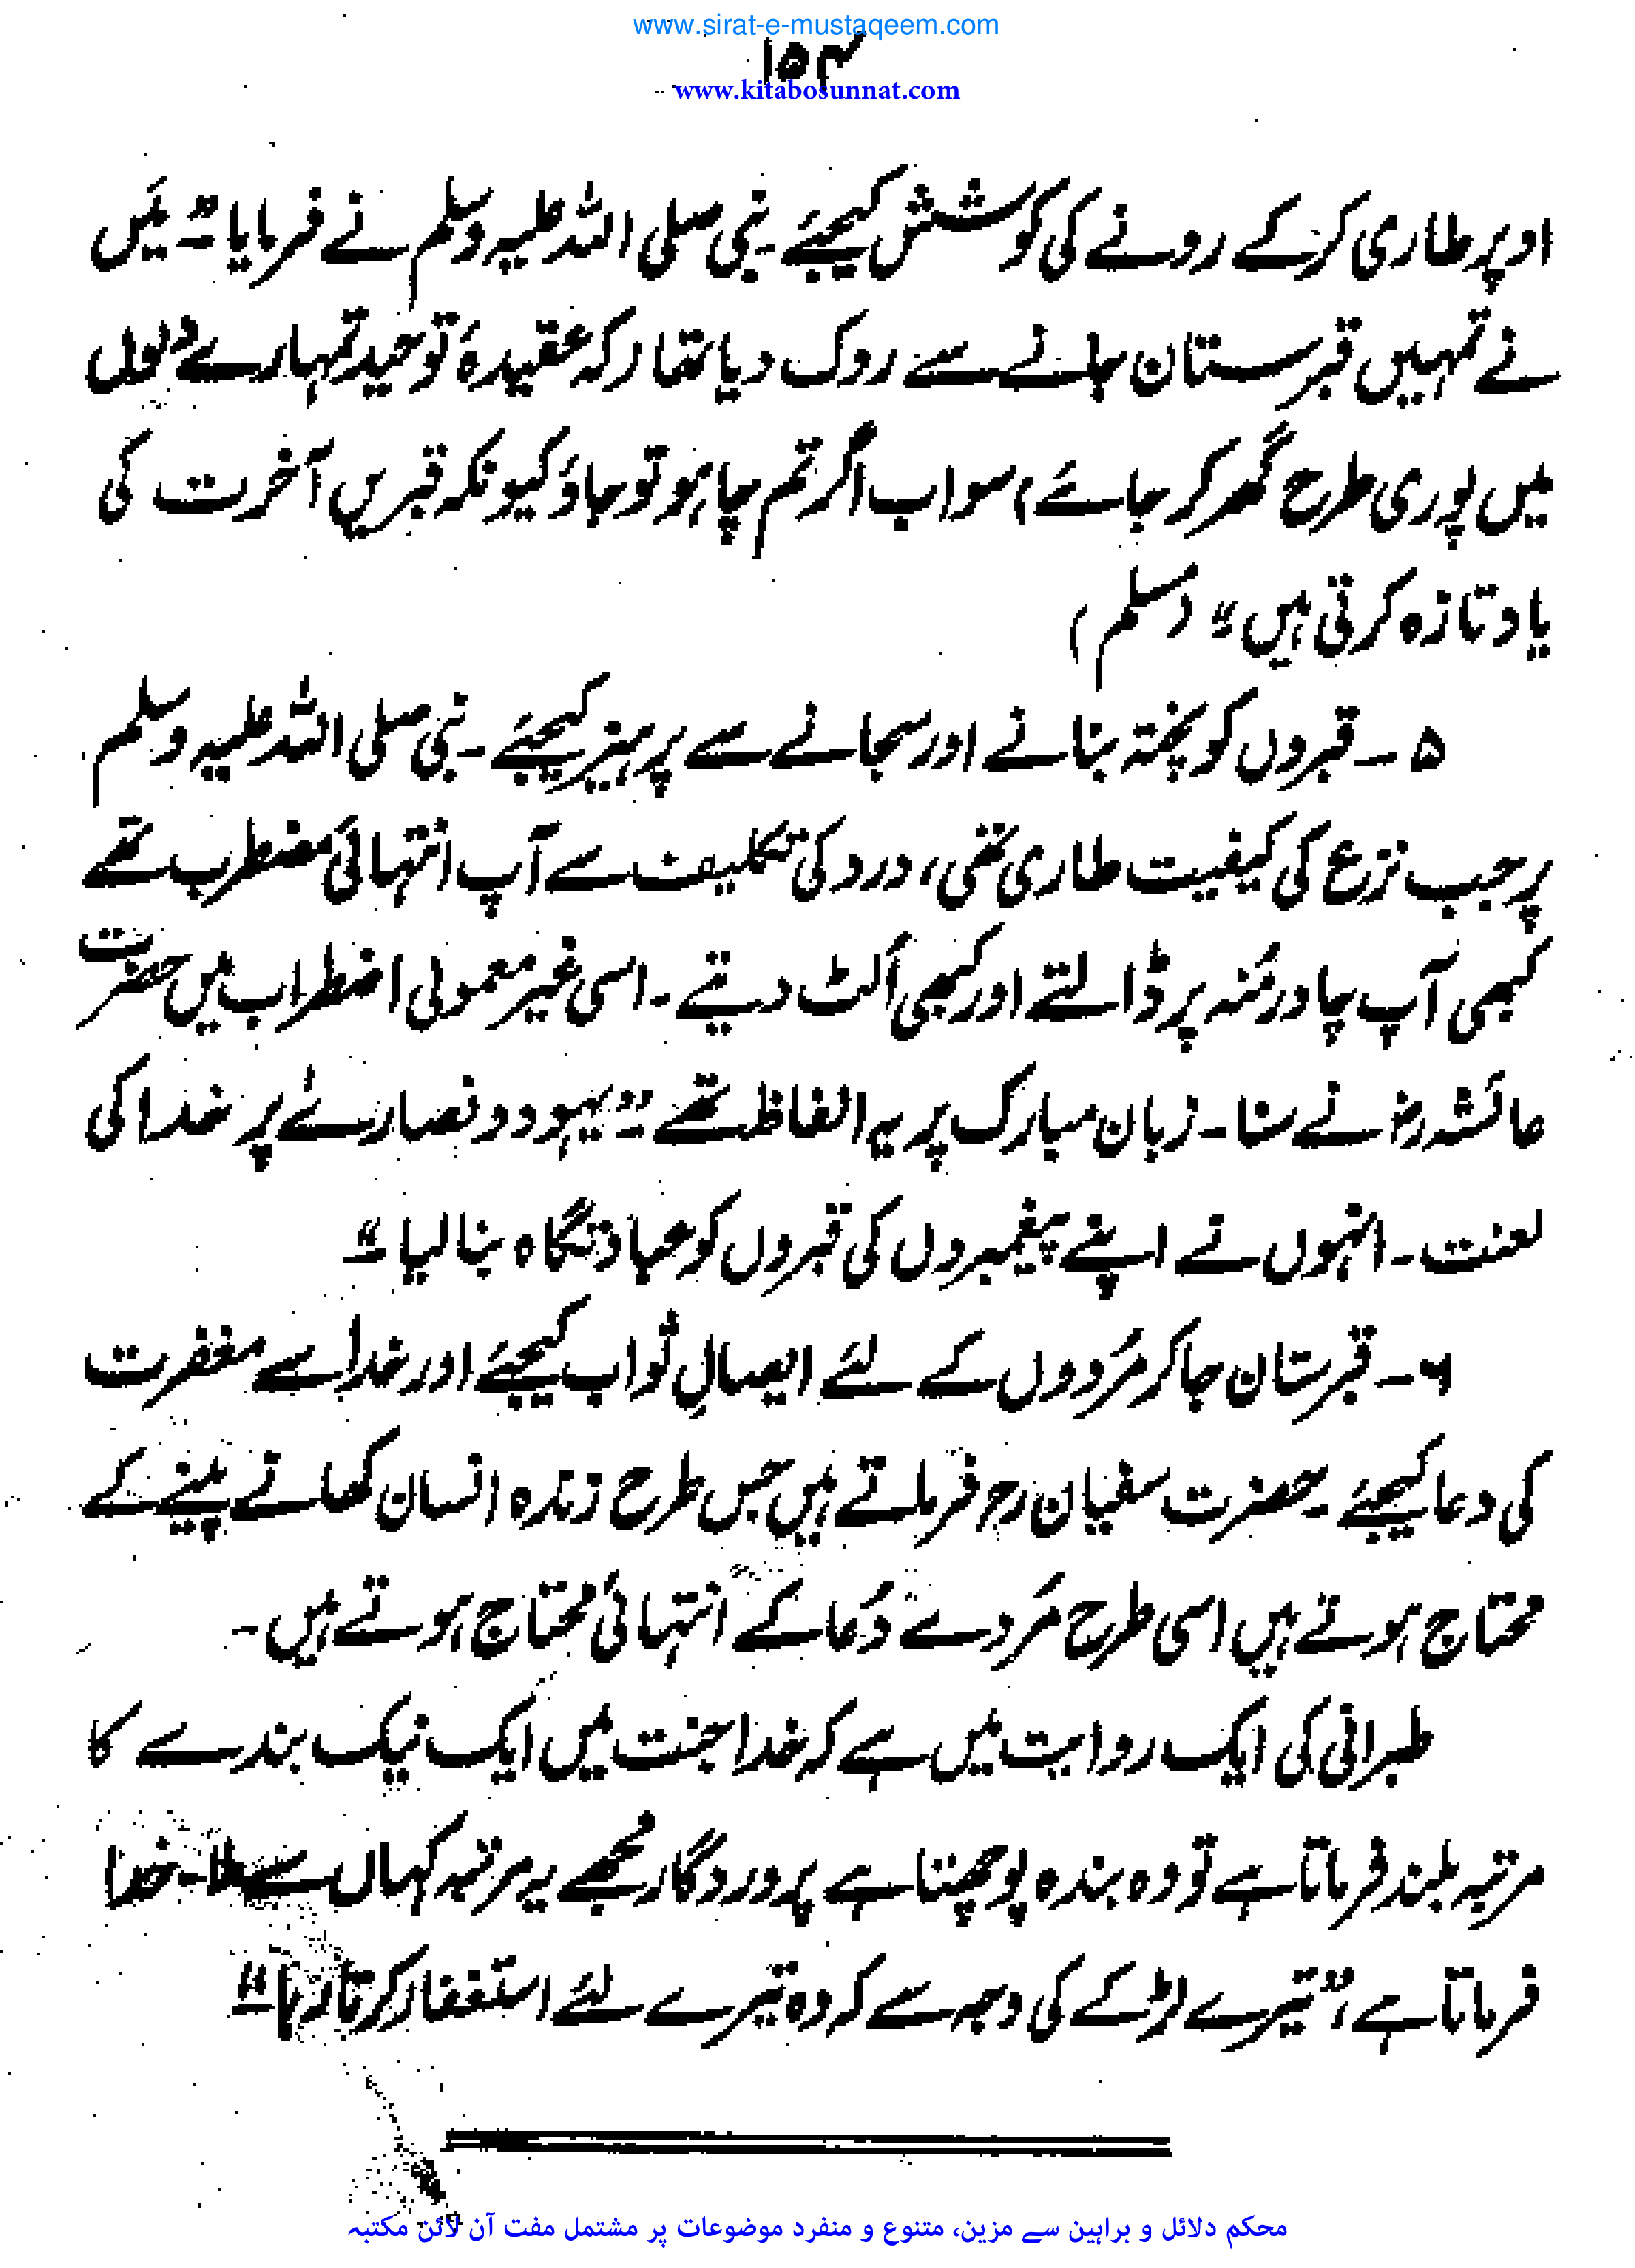 www.sirat-e-mustaqeem.com
۱۵۴
www.kitabosunnat.com
اوپر طاری کرکے رونے کی کوشش کیجیئے۔ نبی صلی اللہ علیہ وسلم نے فرمایا: "میَں
نے تمہیں قبرستان جانے سے روک دیا تھا (کہ عقیدۂ توحید تمہارے دلوں
میں پوری طرح گھر کر جائے) سو اب اگر تم چاہو تو جاؤ کیونکہ قبریں آخرت کی
یاد تازہ کرتی ہیں" (مسلم)
۵ - قبروں کو پختہ بنانے اور سجانے سے پرہیز کیجیئے۔ نبی صلی اللہ علیہ وسلم
پر جب نزع کی کیفیت طاری تھی، درد کی تکلیف سے آپ انتہائی مضطرب تھے
کبھی آپ چادر مُنہ پر ڈالتے اور کبھی اُلٹ دیتے۔ اسی غیر معمولی اضطراب میں حضرت
عائشہ رضؓ نے سنا۔ زبان مبارک پر یہ الفاظ تھے: "یہود و نصاریٰ پر خدا کی
لعنت۔ انہوں نے اپنے پیغمبروں کی قبروں کو عبادتگاہ بنا لیا"
۶ - قبرستان جا کر مُردوں کے لئے ایصالِ ثواب کیجیئے اور خدا سے مغفرت
کی دعا کیجیئے۔ حضرت سفیان رحؒ فرماتے ہیں جس طرح زندہ انسان کھانے پینے کے
محتاج ہوتے ہیں اسی طرح مُردے دُعا کے انتہائی محتاج ہوتے ہیں۔
طبرانی کی ایک روایت میں ہے کہ خدا جنت میں ایک نیک بندے کا
مرتبہ بلند فرماتا ہے تو وہ بندہ پوچھتا ہے پروردگار مجھے یہ مرتبہ کہاں سے ملا۔ خدا
فرماتا ہے، "تیرے لڑکے کی وجہ سے کہ وہ تیرے لئے استغفار کرتا رہا"
محکم دلائل و براہین سے مزین، متنوع و منفرد موضوعات پر مشتمل مفت آن لائن مکتبہ